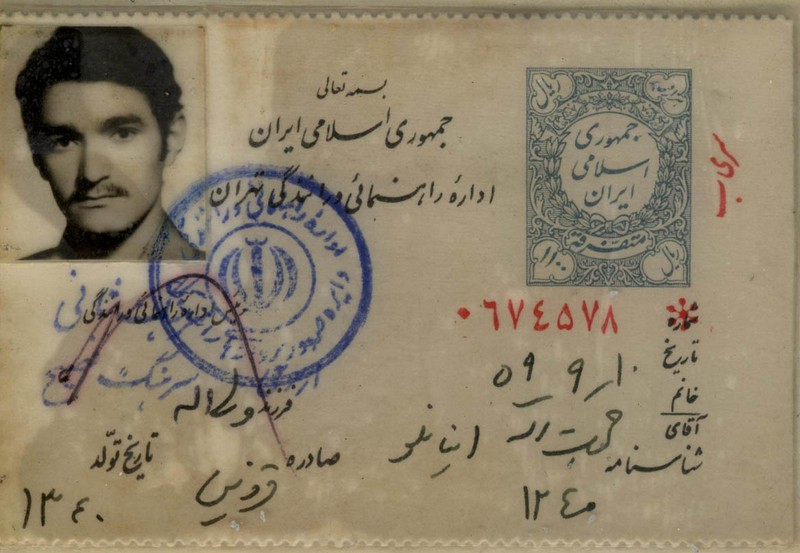 بسمه تعالی
جمهوری اسلامی ایران
اداره راهنمائی و رانندگی تهران
ریال
جمهوری
اسلامی
ایران
متفرقه
ریال
سری ب
شماره ۰۶۷۴۵۷۸
تاریخ ۵۹/۹/۱۰
خانم
آقای
حجت اله اینانلو
فرزند ولی اله
شناسنامه ۱۲۴۰
صادره قزوین
تاریخ تولّد
۱۳۴۰
رئیس اداره راهنمائی و رانندگی